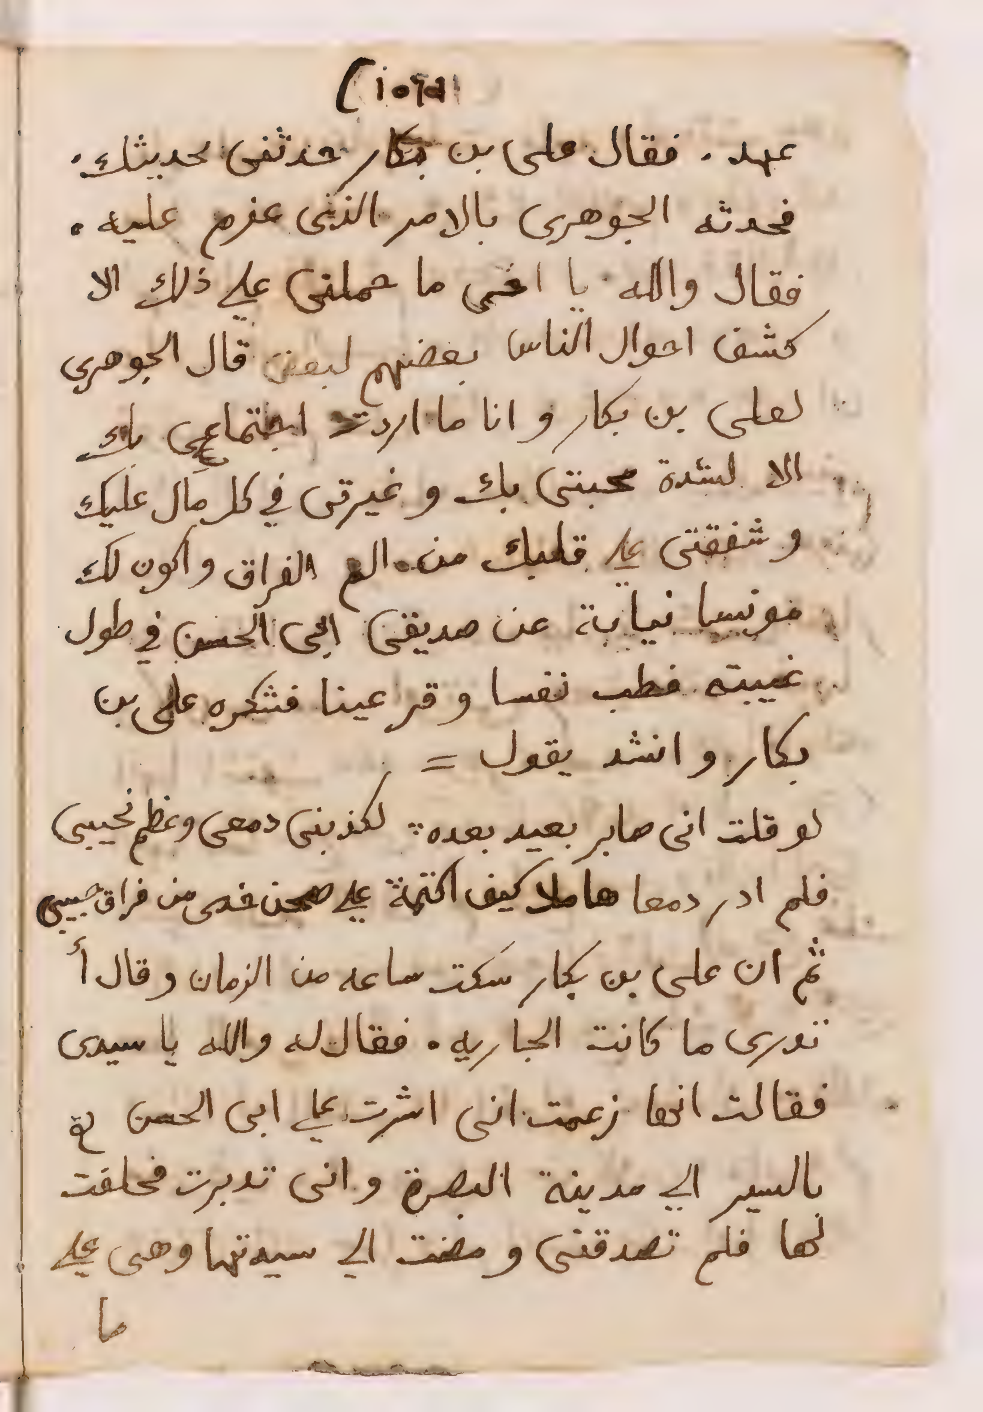 عهد . فقال على بن بكار حدثنى بحديثك .
فحدثه الجوهرى بالامر الذى عزم عليه .
فقال والله يا اخى ما حملنى على ذلك الا
كشف احوال الناس بعضهم لبعض قال الجوهرى
لعلى بن بكار و انا ما اردت اجتماعى بك
الا لشدة محبتى بك و غيرتى في كل مال عليك
و شفقتى على قلبك من الم الفراق واكون لك
مونيسا نيابة عن صديقى ابى الحسن في طول
غيبته فطب نفسا و قر عينا فشكره على بن
بكار و انشد يقول =
لو قلت انى صابر بعيد بعده ∴ لكذبنى دمعى وعظم نحيبى
فلم ادر دمعا هاملا كيف اكتمة على صحن خدى من فراق حبيبى
ثم ان على بن بكار سكت ساعه من الزمان وقال أ
تدرى ما كانت الجاريه . فقال له والله يا سيدى
فقالت انها زعمت انى اشرت على ابى الحسن
بالسير الي مدينة البصرة و انى تدبرت فحلفت
لها فلم تصدقنى و مضت الي سيدتها وهى على
ما